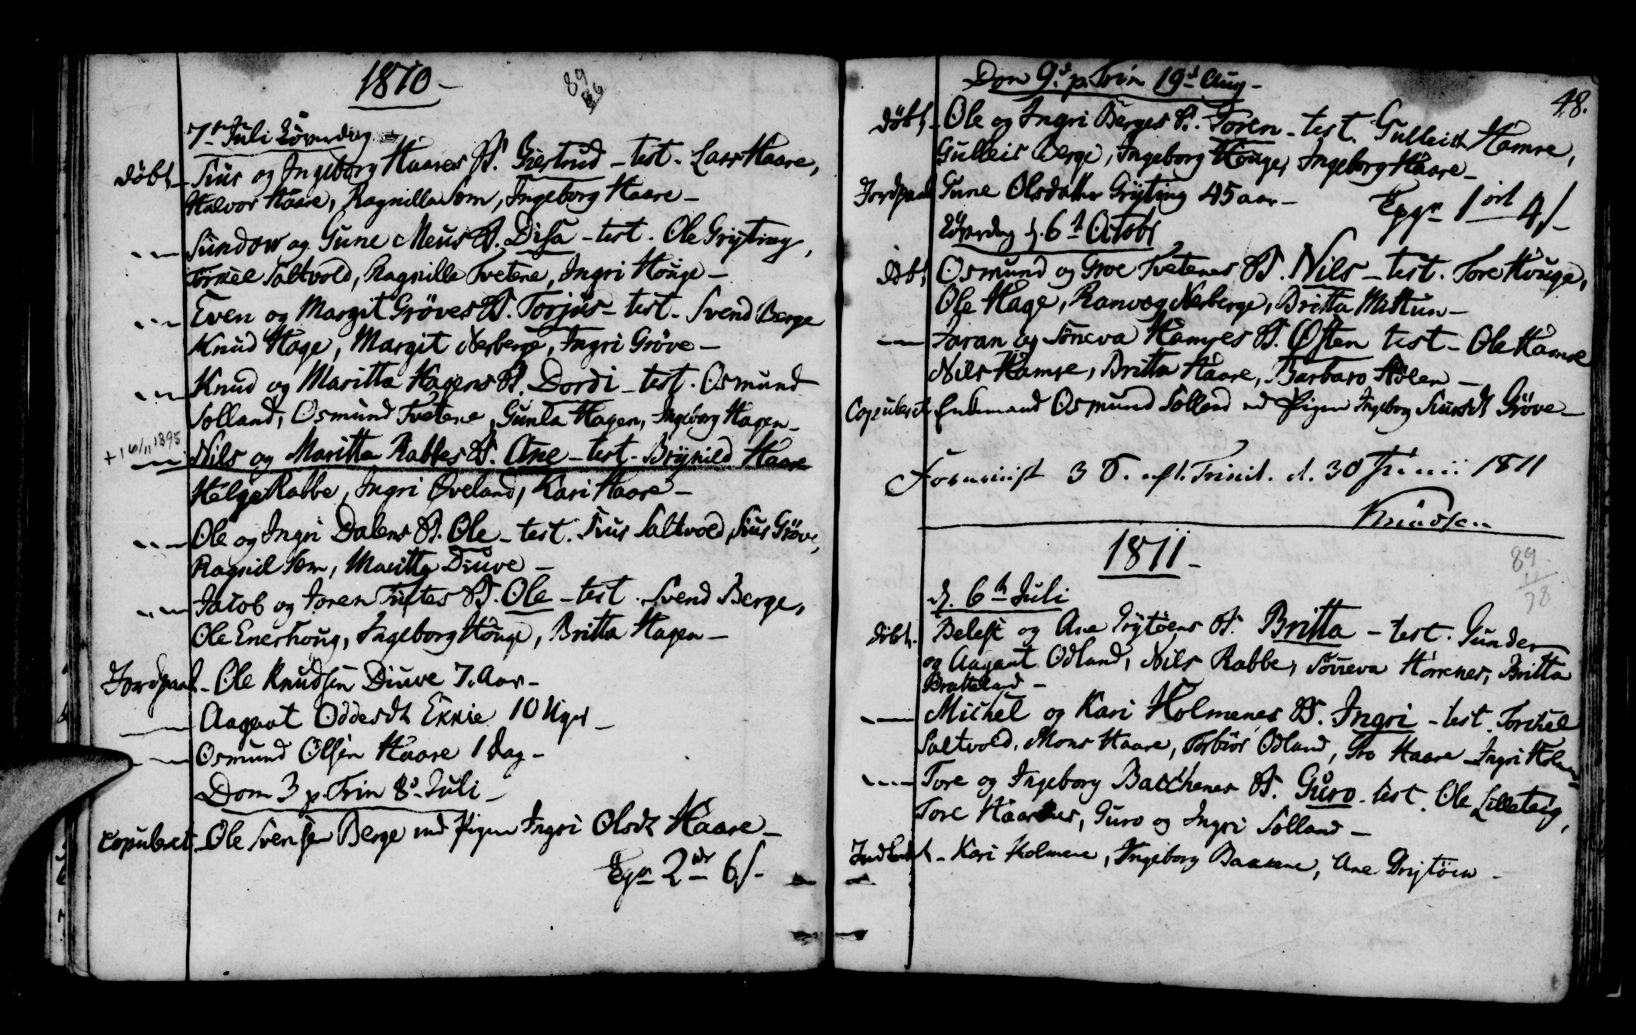 1810 -
89
86
7de Juli Løverdag -
Døbt - Sius og Ingeborg Haares B. Giertrud - test. Lars Haare,
Halvor Haare, Ragnilla Sem, Ingeborg Haare -
" - Sundow og Gune Meus B. Disa - test. Ole Gryting,
Torkel Saltvold, Ragnille Tvetene, Ingri Houge -
" - Even og Margit Gröves B. Torjus - test. Svend Berge
Knud Hage, Margit Nerberge, Ingri Gröve -
" - Knud og Maritta Hagens B. Dordi - test. Osmund
Solland, Osmund Tvetene, Gunla Hagen, Ingeborg Hagen -
+ 16/11 1895
- Nils og Maritta Rabbes B. Ane - test. Brynild Haare
Helge Rabbe, Ingri Øveland, Kari Haare -
" - Ole og Ingri Dalens B. Ole - test. Sius Saltvold, Sius Gröve,
Ragnil Sem, Maritta Diuve -
" - Jacob og Joren Tuftes B. Ole - test. Svend Berge,
Ole Enerhoug, Ingeborg Houge, Britta Hagen -
Jordpaak. - Ole Knudsen Diuve 7. Aar -
- Aagaat Oddesdt Ekkie 10 Uger -
- Osmund Olsen Haare 1 dag -
Dom 3 p. Trin 8de Juli -
Copuleret - Ole Svensen Berge med Pigen Ingri Olsdt Haare -
2 6 s -
48.
Dom 9de p. Trin 19de Aug -
Døbt - Ole og Ingri Berges B. Joren - test. Gulleick Hamre,
Gulleic Berge, Ingeborg Houge, Ingeborg Haare -
Jordpaak. Gune Olsdatter Gryting 45 aar -
1 ort 4 s -
Løverdag d. 6te Octobr
Døbt Osmund og Groe Tvetenes B. Nils - test. Tore Houge,
Ole Hage, Ranveg Nerberge, Britta Midtun -
- Jaran og Söneva Hamres B. Østen test - Ole Hamre
Nils Hamre, Britta Haare, Barbaro Hölen -
Copuleret Enkemand Osmund Solland med Pigen Ingeborg Siursdt Gröve -
3 S. eft. Trinit. d. 30 Junii 1811
Knudsen
1811 -
89
78
d. 6te Juli
Döbt. Beleist og Ane Prytöens B. Britta - test. Gunder
og Aagaat Odland, Nils Rabbe, Söneva Horrenes, Britta
Bratteland -
- Michel og Kari Holmenes B. Ingri - test. Torchel
Saltvold, Mons Haare, Torbiör Odland, Gro Haare - Ingri Holmen
- Tore og Ingeborg Bacchenes B. Guro - test. Ole Lilleteig,
Tore Haarenes, Guro og Ingri Solland -
Indledt - Kari Holmene, Ingeborg Baccene, Ane Prytöen -